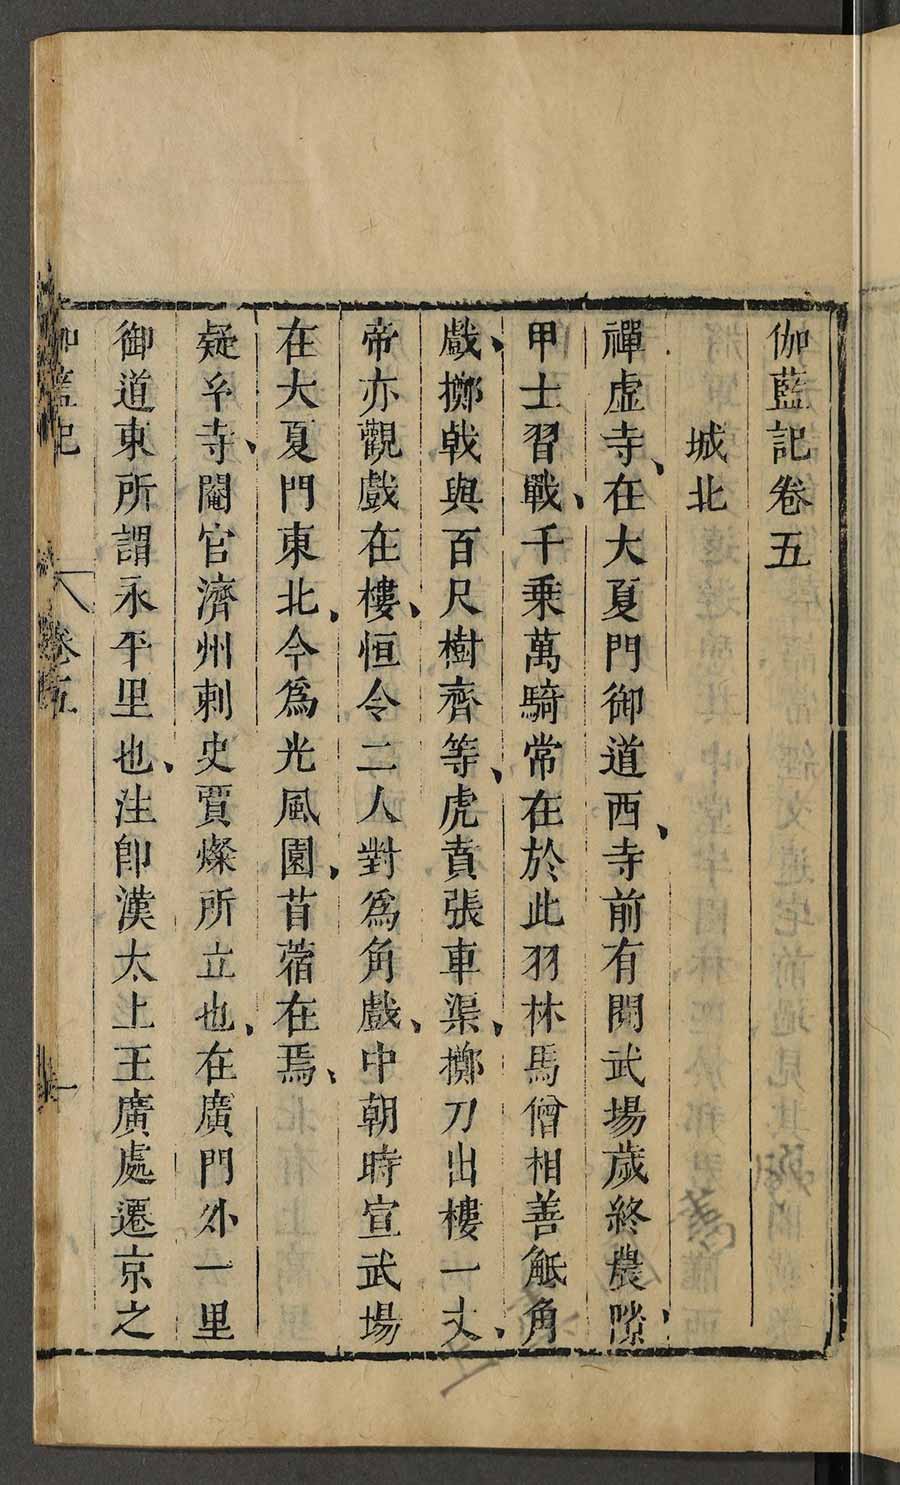 伽藍記卷五
城北
禪虛寺、在大夏門御道西、寺前有閱武場歲終農隙、
甲士習戰、千乗萬騎常在於此羽林馬僧相善觝角
戲、擲戟與百尺樹齊等、虎賁張車渠、擲刀出樓一丈、
帝亦觀戲在樓、恒令二人對爲角戲、中朝時宣武場
在大夏門東北、今爲光風園、苜蓿在焉、
疑𤣥寺、閹官濟州刺史賈燦所立也、在廣門外一里
御道東所謂永平里也、注卽漢太上王廣處遷京之
伽藍記 卷五 一